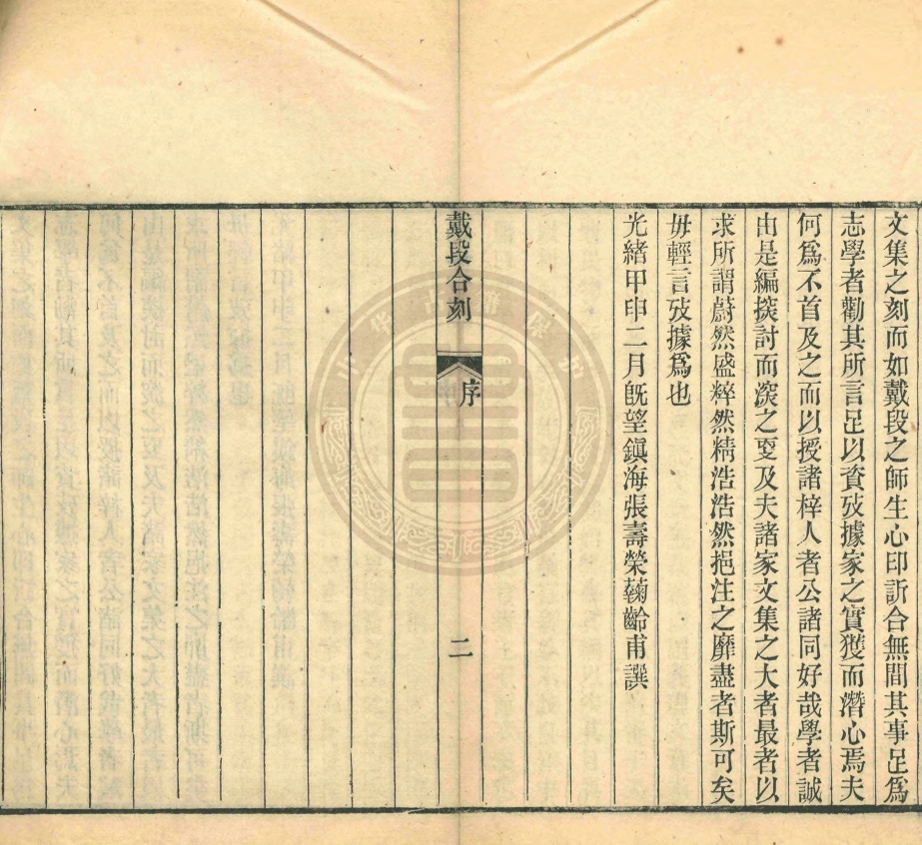 文集之刻而如戴段之師生心印訢合無間其事足爲
志學者勸其所言足以資攷據家之實獲而潛心焉夫
何爲不首及之而以授諸梓人者公諸同好哉學者誠
出是編探討而深之更及夫諸家文集之大者最者以
求所謂蔚然盛粹然精浩浩然挹注之靡盡者斯可矣
毋輕言攷據爲也
光緒甲申二月旣望鎭海張壽榮鞠齡甫譔
戴段合刻
序
二